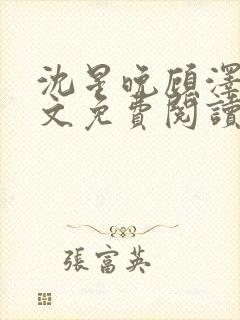 沈星晚顾泽
文免費閱讀
張富英